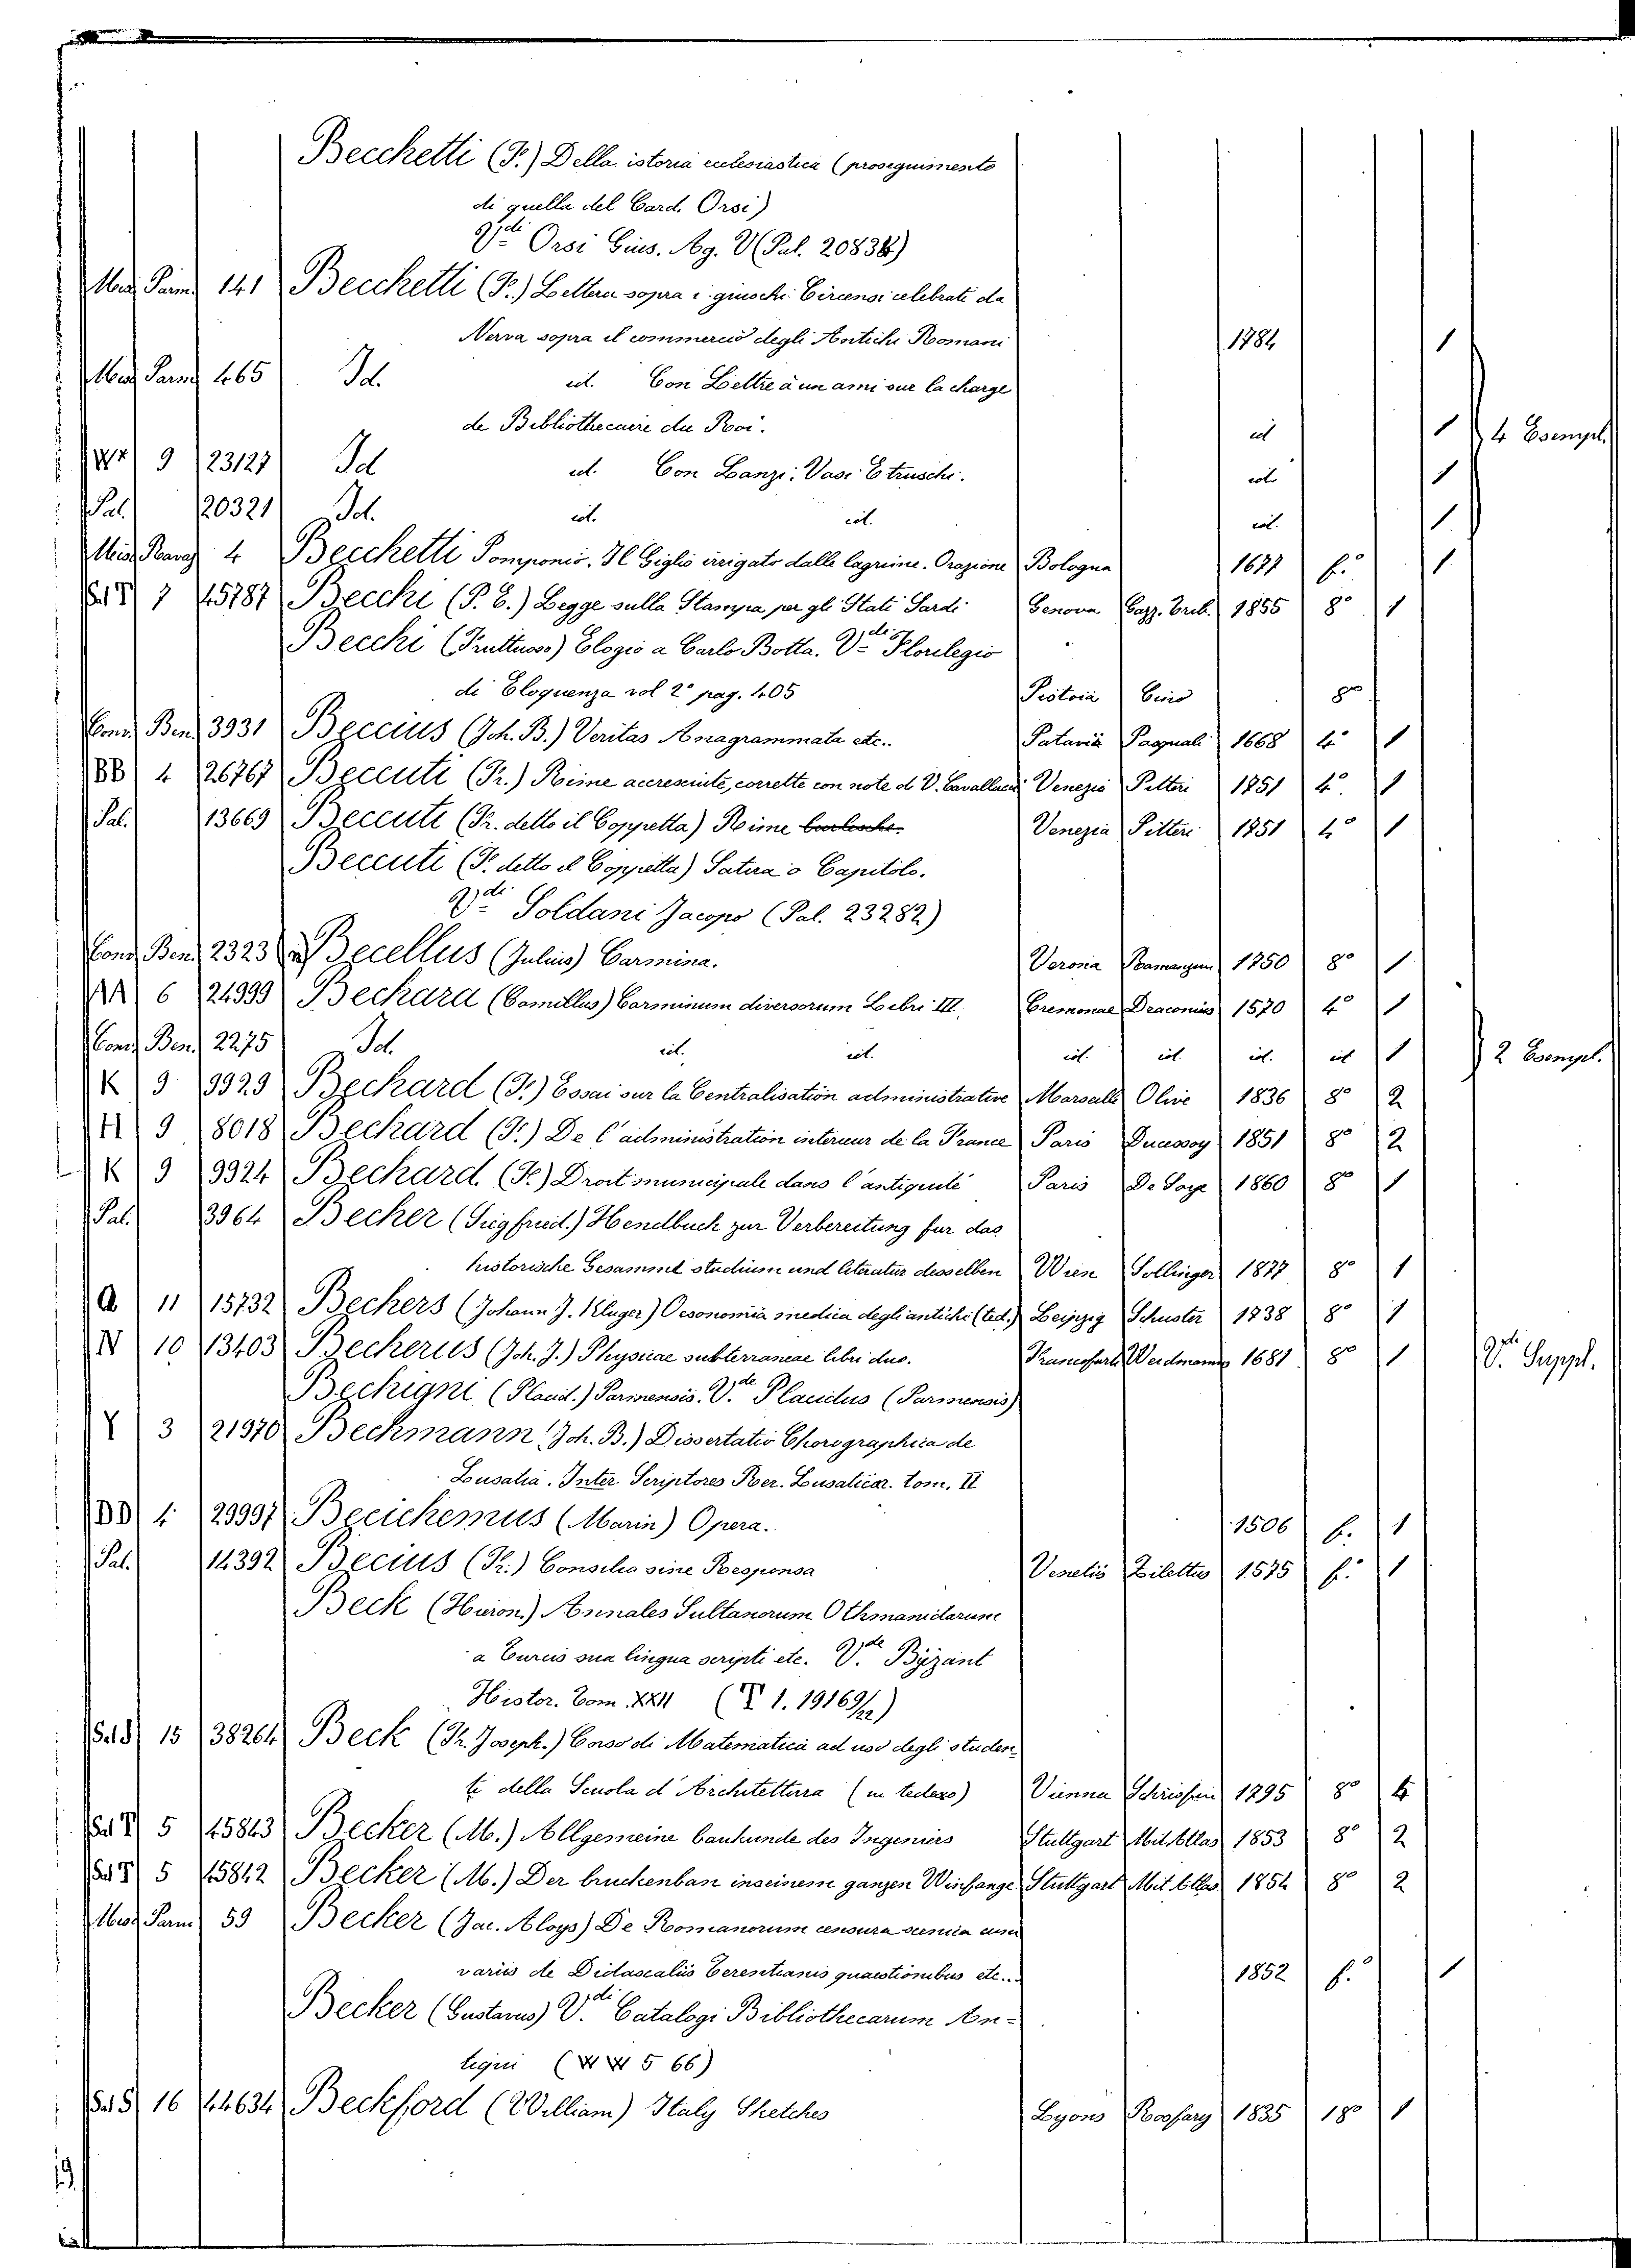 Becchetti (F.) Della istoria ecclesiastica (proseguimento
di quella del Card. Orsi)
Vdi Orsi Gius. Ag. V (Pal. 20834)
Misc. Parm. 141 Becchetti (F.) Lettera sopra i giuochi Circensi celebrati da
Nerva sopra il commercio degli Antichi Romani 1784 1
Misc. Parm. 465 Id. id. Con Lettre à un ami sur la charge
de Bibliothecaire du Roi. id 1 4 Esempl.
9 23127 Id id. Con Lanzi: Vasi Etruschi. id. 1
Pal. 20321 Id. id. id. id. 1
4 Becchetti Pomponio. Il Giglio irrigato dalle lagrime. Orazione Bologna 1677 f.° 1
7 45787 Becchi (P. E.) Legge sulla Stampa per gli Stati Sardi Genova Gazz. Trib. 1855 8° 1
Becchi (Fruttuoso) Elogio a Carlo Botta. Vdi Florilegio
di Eloquenza vol 2° pag. 405 Pistoia Cino 8°
Conv. Ben. 3931 Beccius (Joh. B.) Veritas Anagrammata etc.. Patavii Pasquali 1668 4° 1
BB 4 26767 Beccuti (Fr.) Rime accresciute, corrette con note di V. Cavallucci Venezia Pitteri 1751 4° 1
Pal. 13669 Beccuti (Fr. detto il Coppetta) Rime burlesche. Venezia Pitteri 1751 4° 1
Beccuti (F. detto il Coppetta) Satira o Capitolo.
Vdi Soldani Jacopo (Pal. 23282)
Conv. Ben. 2323 Becellus (Julius) Carmina. Verona Ramanzini 1750 8° 1
AA 6 24999 Bechara (Camillus) Carminum diversorum Libri III. Cremonae Draconius 1570 4° 1
Conv. Ben. 2275 Id. id. id. id. id. id. id 1 2 Esempl.
K 9 9929 Bechard (F.) Essai sur la Centralisation administrative Marseille Olive 1836 8° 2
H 9 8018 Bechard (F.) De l'administration interieur de la France Paris Ducessoy 1851 8° 2
K 9 9924 Bechard. (F.) Droit municipale dans l'antiquité Paris De Soye 1860 8° 1
Pal. 3964 Becher (Siegfried.) Hendbuch zur Verbereitung fur das
historische Gesammt studium und literatur desselben Wien Sollinger 1877 8° 1
A 11 15732 Bechers (Johann J. Kluger) Oeconomia medica degli antichi (ted.) Leipzig Schuster 1738 8° 1
N 10 13403 Becherus (Joh. J.) Physicae subterraneae libri duo. Francofurti Weidmannis 1681 8° 1 Vdi Suppl.
Bechigni (Placid.) Parmensis. Vde Placidus (Parmensis)
Y 3 21970 Bechmann Joh. B.) Dissertatio Chorographica de
Lusatia. Inter Scriptores Rer. Lusaticar. tom. II
DD 4 29997 Becichemus (Marin) Opera. 1506 f. 1
Pal. 14392 Becius. (Fr.) Consilia sine Responsa Venetiis Zilettus 1575 f.° 1
Beck (Hieron.) Annales Sultanorum Othmanidarum
a Turcis sua lingua scripti etc. Vde Byzant
Histor. Tom. XXII (T 1. 19169/22)
15 38264 Beck (Fr. Joseph.) Corso di Matematica ad uso degli studen=
ti della Scuola d'Architettura (in tedesco) Vienna 1795 8° 4
5 45843 Becker (M.) Allgemeine baukunde des Ingeniers Stuttgart Mit Atlas 1853 8° 2
5 45842 Becker (M.) Der bruckenbau inseinem ganzen Stuttgart Mit Atlas 1854 8° 2
Misc. Parm. 59 Becker (Jac. Aloys) De Romanorum censura scenica cum
variis de Didascaliis Terentianis quaestionibus etc... 1852 f.° 1
Becker (Gustavus) Vdi Catalogi Bibliothecarum An=
tiqui (WW 5 66)
16 44634 Beckford (William) Italy Sketches Lyons Roosfary 1835 18° 1